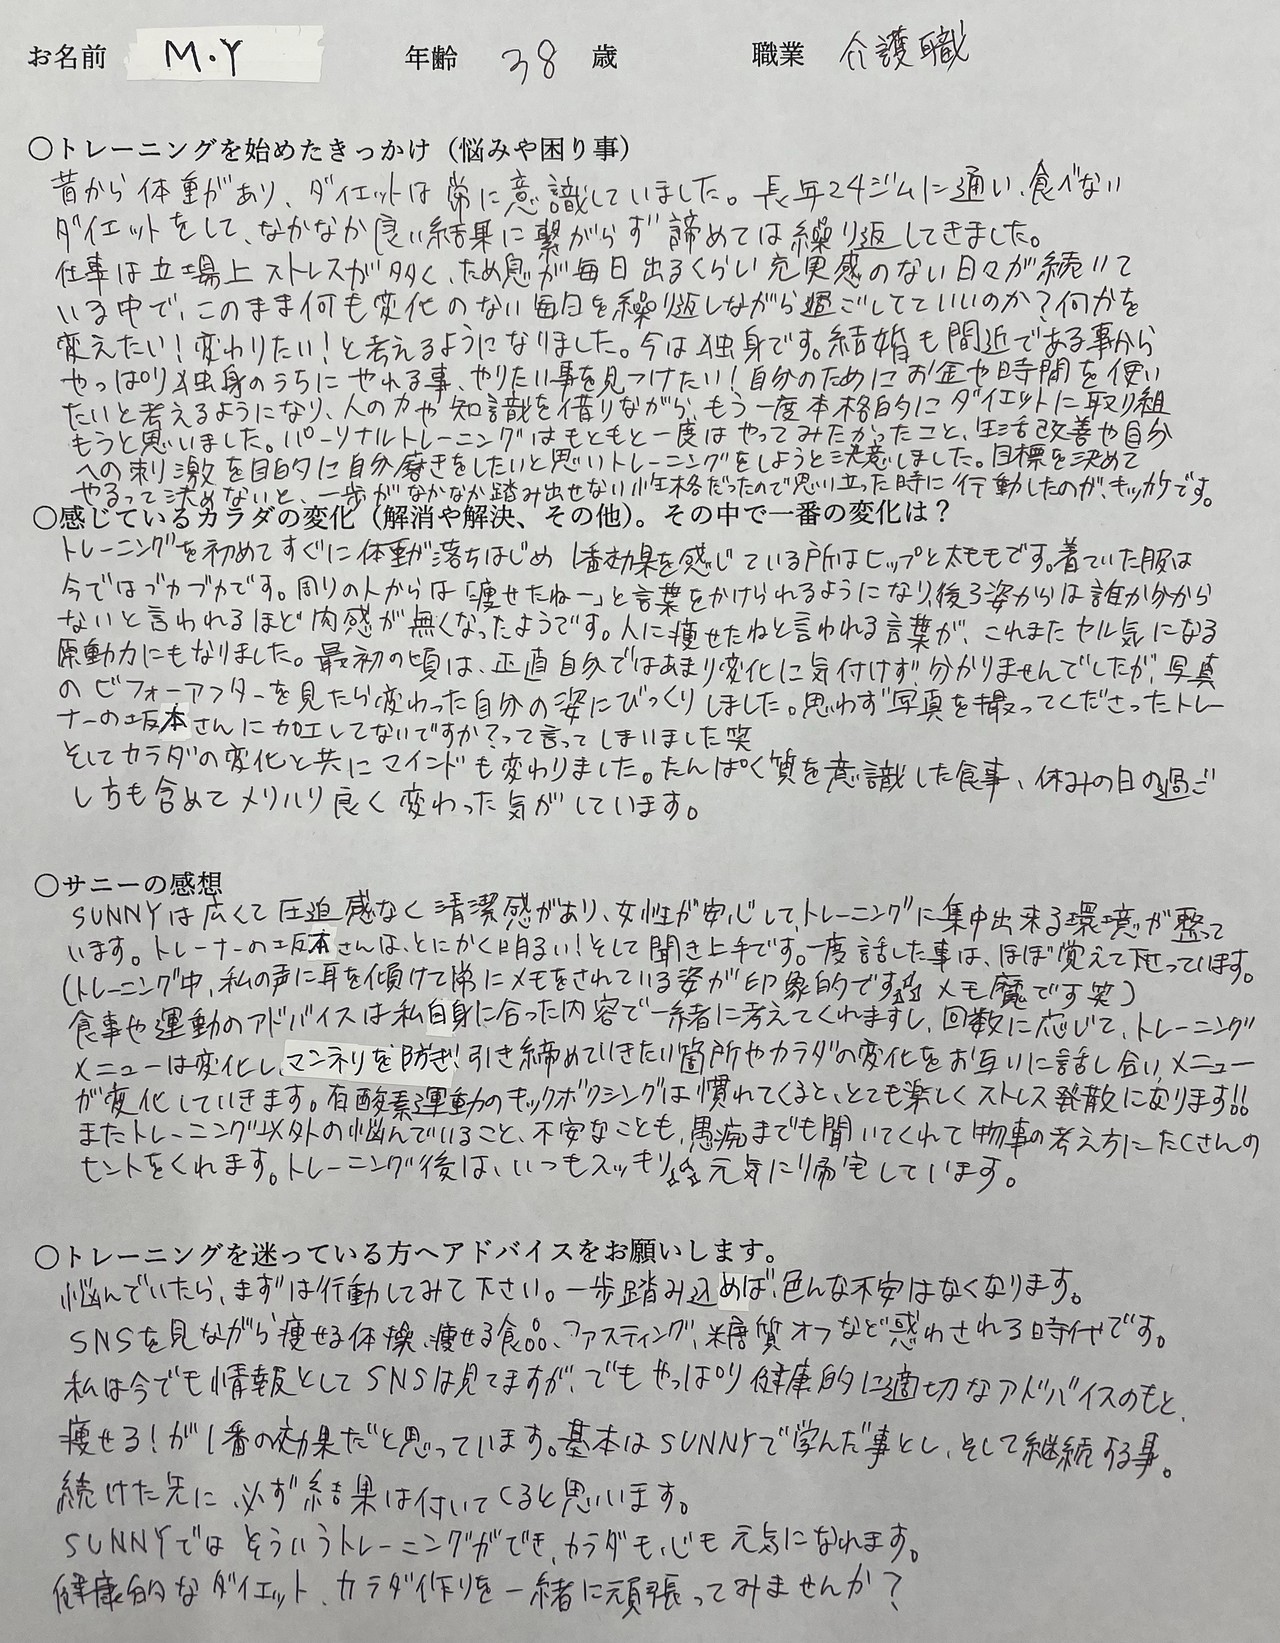 お名前 M.Y 年齢 38 歳 職業 介護職
〇トレーニングを始めたきっかけ（悩みや困り事）
昔から体重があり、ダイエットは常に意識していました。長年24ジムに通い、食べない
ダイエットをして、なかなか良い結果に繋がらず諦めては繰り返してきました。
仕事は立場上ストレスが多く、ため息が毎日出るくらい充実感のない日々が続いて
いる中で、このまま何も変化のない毎日を繰り返しながら過ごしてていいのか?何かを
変えたい!変わりたい!と考えるようになりました。今は独身です。結婚も間近である事から
やっぱり独身のうちにやれる事、やりたい事を見つけたい!自分のためにお金や時間を使い
たいと考えるようになり、人の力や知識を借りながら、もう一度本格的にダイエットに取り組
もうと思いました。パーソナルトレーニングはもともと一度はやってみたかったこと、生活改善や自分
への刺激を目的に自分磨きをしたいと思いトレーニングをしようと決意しました。目標を決めて
やるって決めないと、一歩がなかなか踏み出せない性格だったので思い立った時に行動したのが、キッカケです。
〇感じているカラダの変化（解消や解決、その他）。その中で一番の変化は？
トレーニングを初めてすぐに体重が落ちはじめ1番効果を感じている所はヒップと太ももです。着ていた服は
今ではブカブカです。周りの人からは「痩せたねー」と言葉をかけられるようになり、後ろ姿からは誰か分から
ないと言われるほど肉感が無くなったようです。人に痩せたねと言われる言葉が、これまたヤル気になる
原動力にもなりました。最初の頃は、正直自分ではあまり変化に気付けず分かりませんでしたが、写真
のビフォーアフターを見たら変わった自分の姿にびっくりしました。思わず写真を撮ってくださったトレー
ナーの坂本さんに加工してないですか?って言ってしまいました笑
そしてカラダの変化と共にマインドも変わりました。たんぱく質を意識した食事、休みの日の過ご
し方も含めてメリハリ良く変わった気がしています。
〇サニーの感想
SUNNYは広くて圧迫感なく清潔感があり、女性が安心して、トレーニングに集中出来る環境が整って
います。トレーナーの坂本さんは、とにかく明るい!そして聞き上手です。一度話した事は、ほぼ覚えて下さっています。
(トレーニング中、私の声に耳を傾けて常にメモをされている姿が印象的です☆☆メモ魔です笑)
食事や運動のアドバイスは私自身に合った内容で一緒に考えてくれますし、回数に応じて、トレーニング
メニューは変化し、マンネリを防ぎ!引き締めていきたい箇所やカラダの変化をお互いに話し合い、メニュー
が変化していきます。有酸素運動のキックボクシングは慣れてくると、とても楽しくストレス発散になります!!
またトレーニング以外の悩んでいること、不安なことも、愚痴までも聞いてくれて物事の考え方にたくさんの
ヒントをくれます。トレーニング後は、いつもスッキリ☆☆元気に帰宅しています。
〇トレーニングを迷っている方へアドバイスをお願いします。
悩んでいたら、まずは行動してみて下さい。一歩踏み込めば、色んな不安はなくなります。
SNSを見ながら痩せる体操、痩せる食品、ファスティング、糖質オフなど惑わされる時代です。
私は今でも情報としてSNSは見てますが、でもやっぱり健康的に適切なアドバイスのもと、
痩せる!が1番の効果だと思っています。基本はSUNNYで学んだ事とし、そして継続する事。
続けた先に必ず結果は付いてくると思います。
SUNNYではそういうトレーニングができ、カラダも心も元気になれます。
健康的なダイエット、カラダ作りを一緒に頑張ってみませんか?